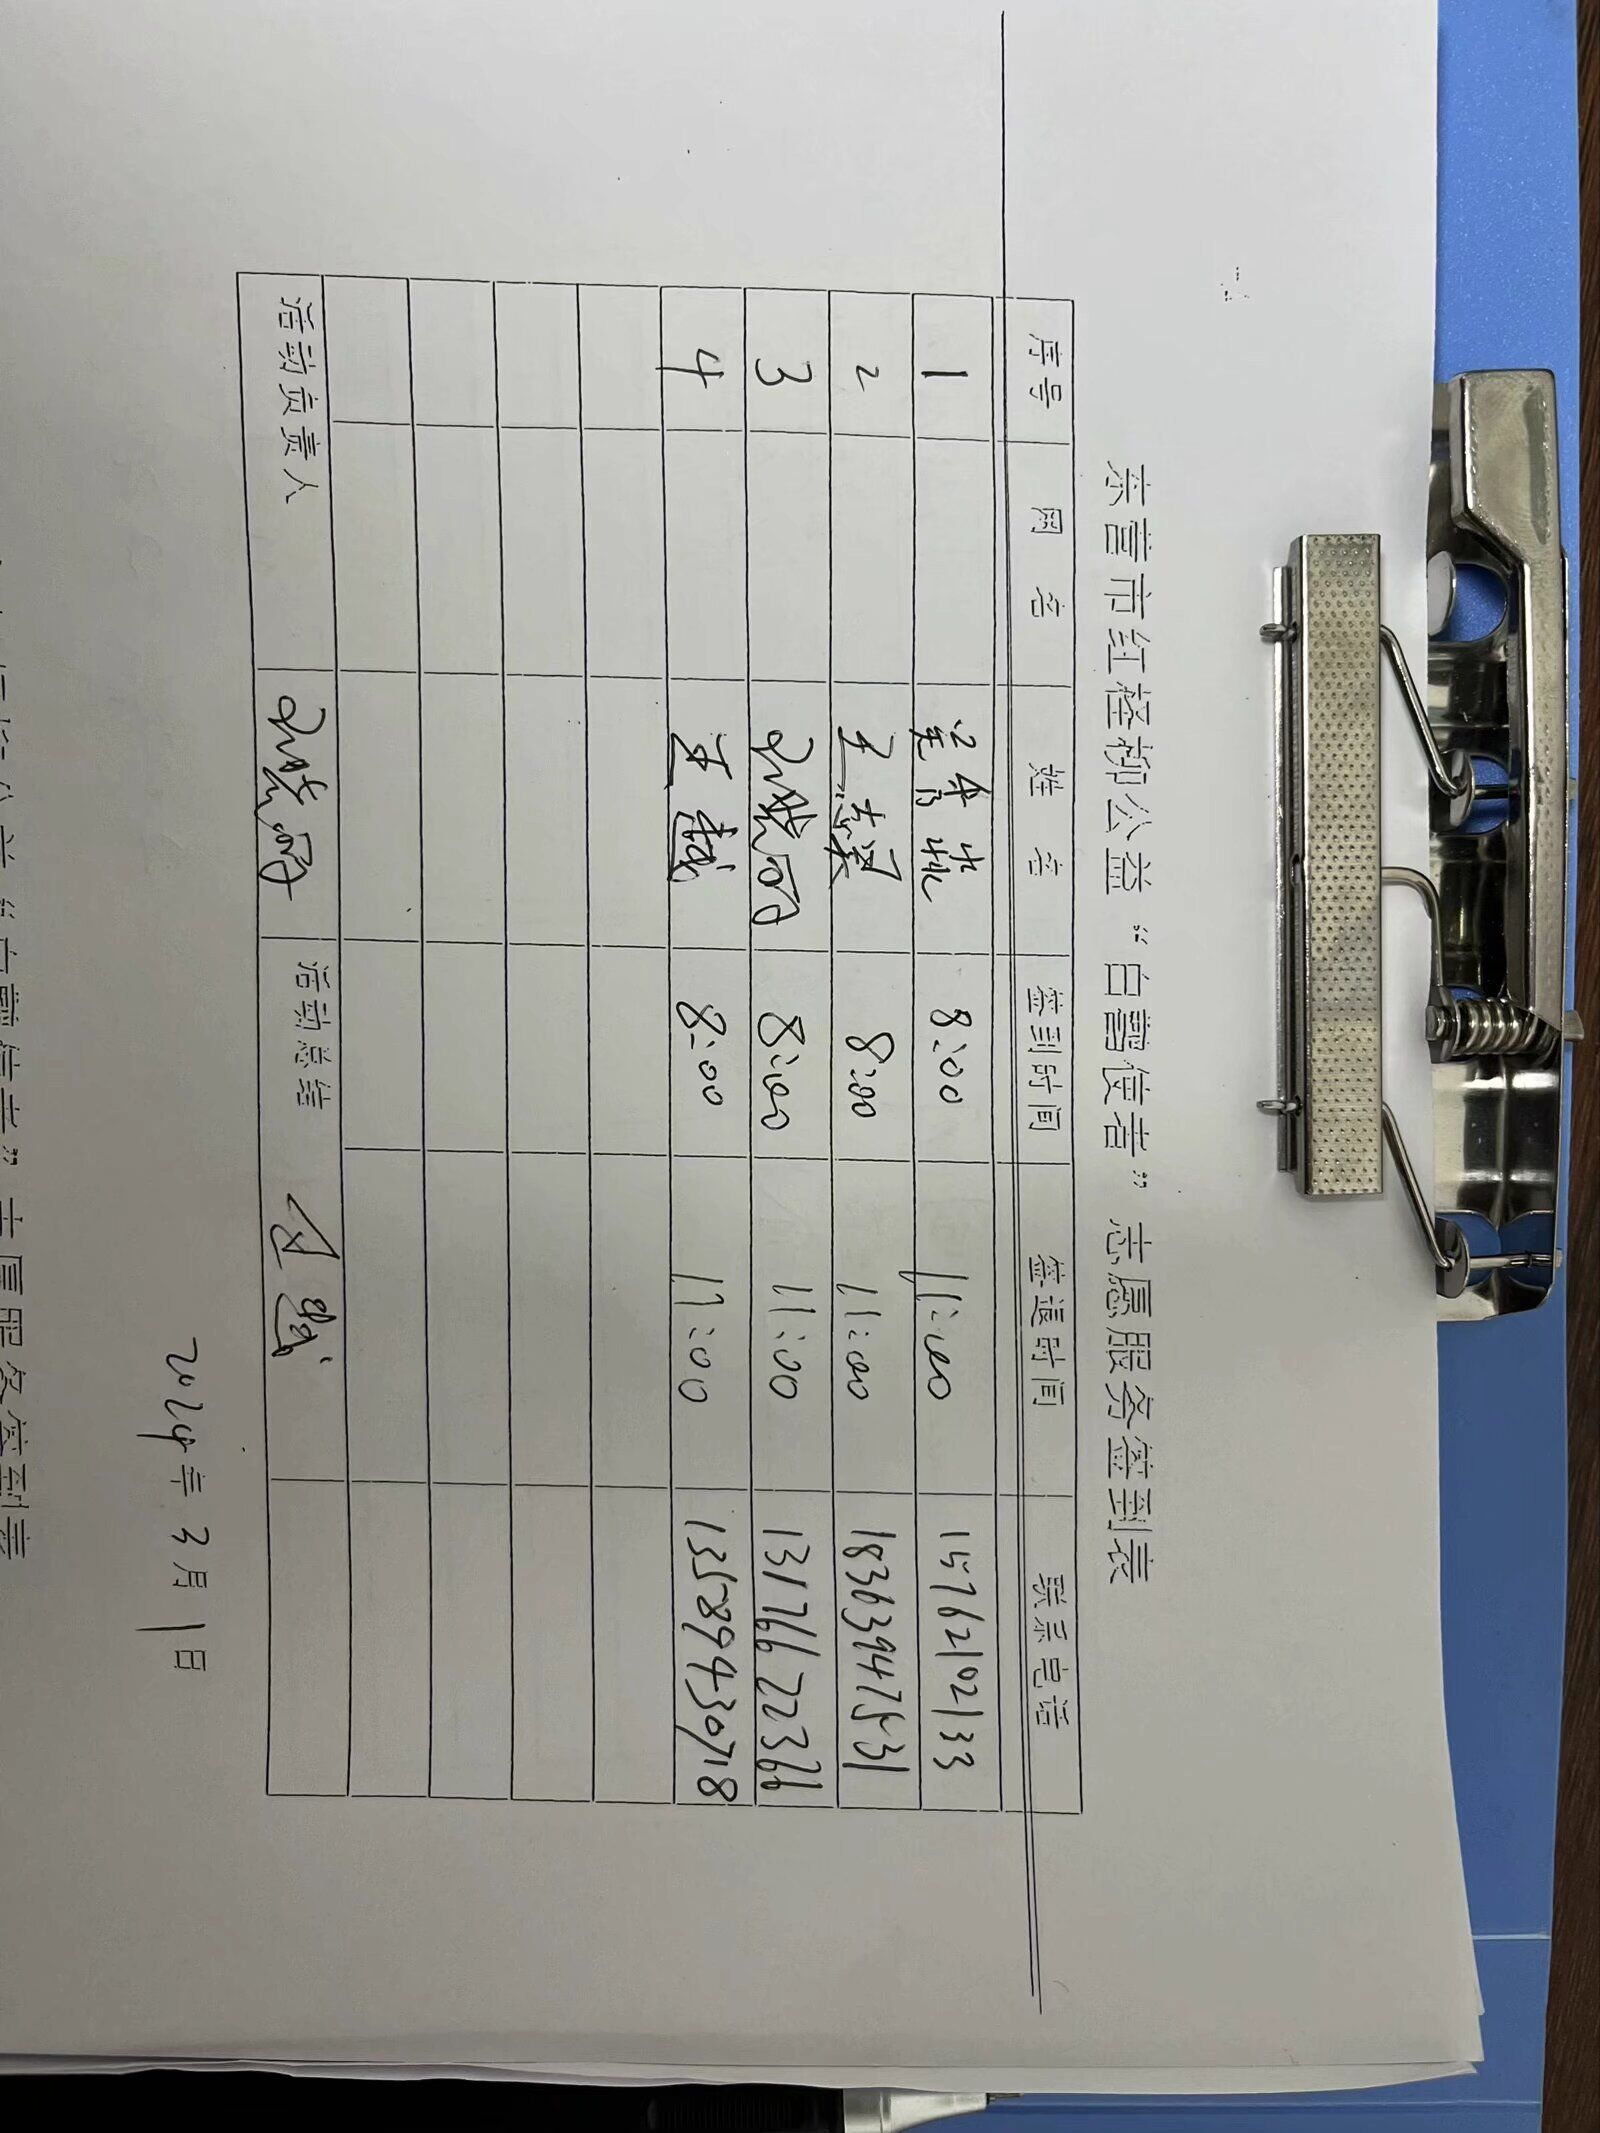 东营市红柽柳公益“白鹭使者”志愿服务签到表
序号 网名 姓名 签到时间 签退时间 联系电话
1 8:00 11:00 15762102133
2 王志溪 8:00 11:00 18363947531
3 8:00 11:00 13176622366
4 王诚 8:00 11:00 13589430718
活动负责人 活动总结
2024年3月1日